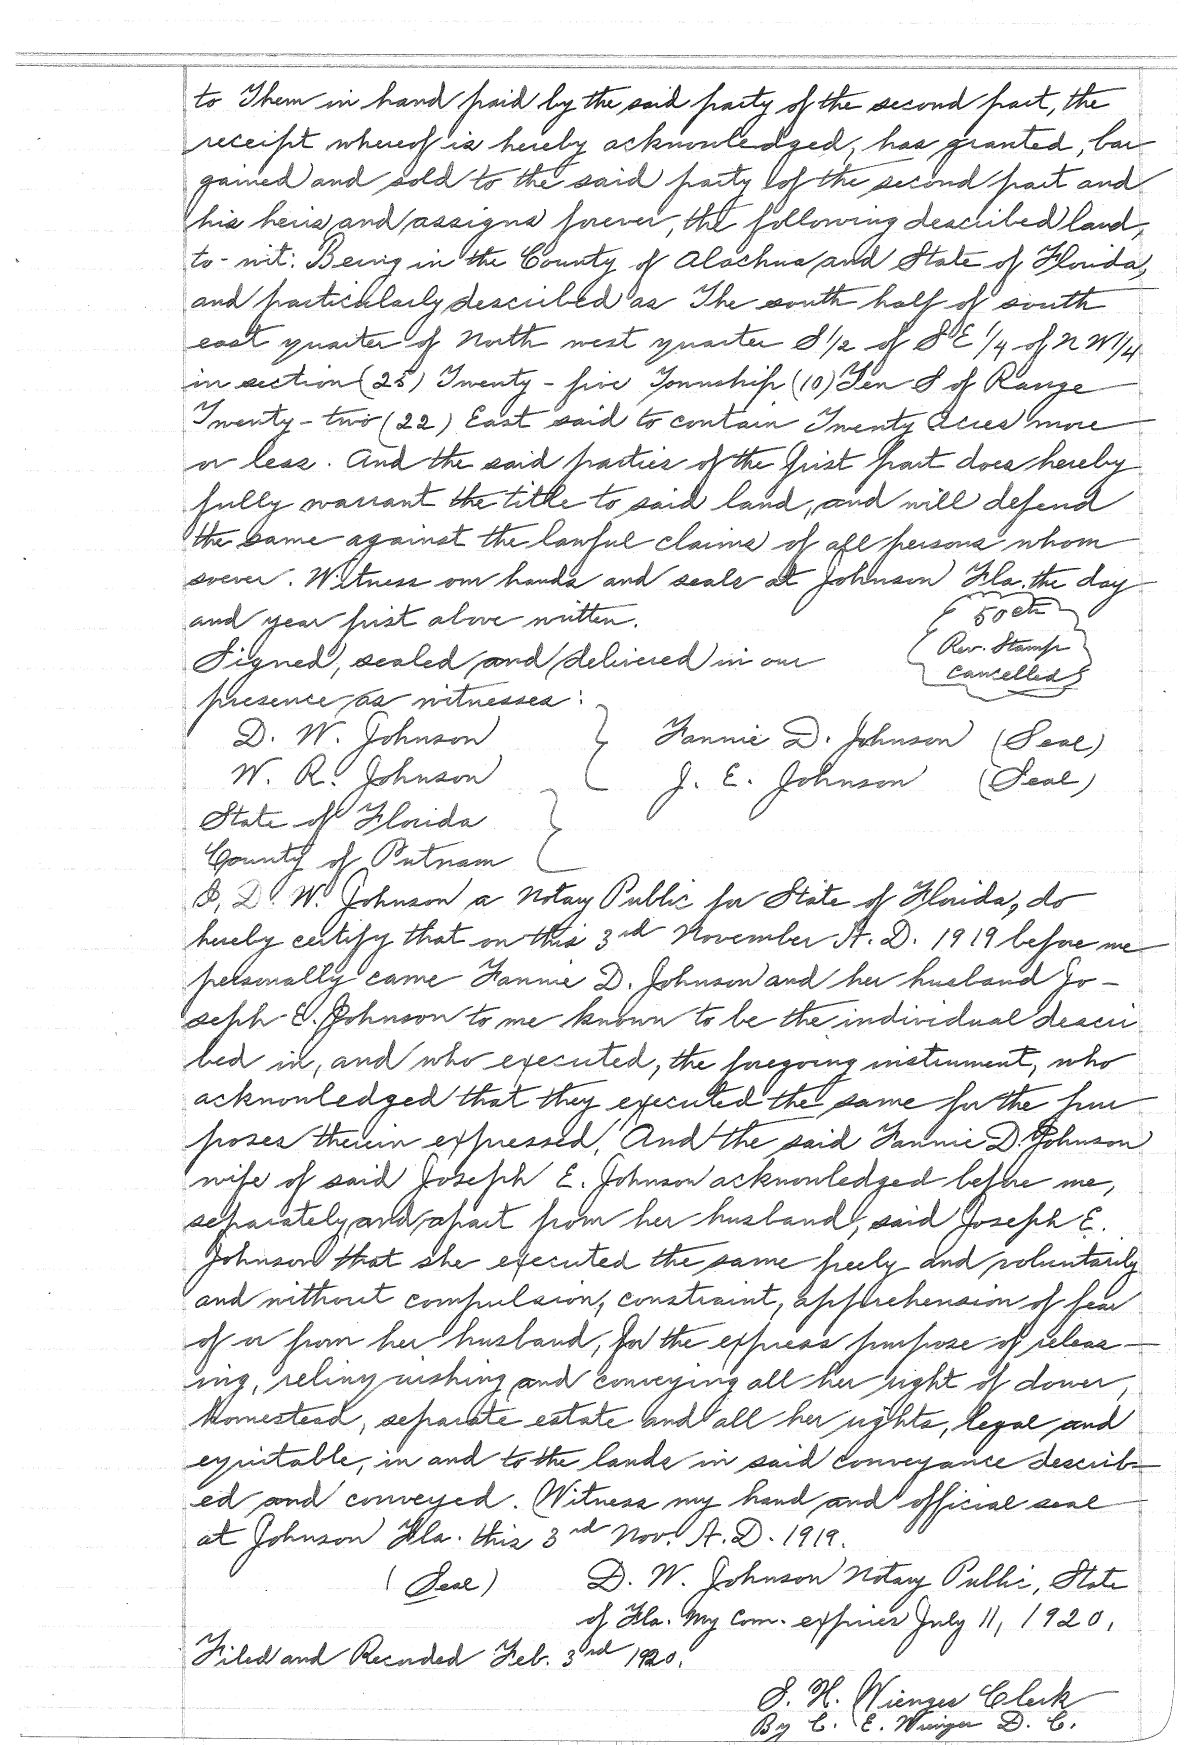 to Them in hand paid by the said party of the second part, the
receipt whereof is hereby acknowledged, has granted, bar
gained and sold to the said party of the second part and
his heirs and assigns forever, the following described land,
to-wit: Being in the County of Alachua and State of Florida,
and particularly described as The south half of south
east quarter of North west quarter S 1/2 of S E 1/4 of N W 1/4
in section (25) Twenty-five Township (10) Ten S of Range
Twenty-two (22) East said to contain Twenty Acres more
or less. And the said parties of the first part does hereby
fully warrant the title to said land, and will defend
the same against the lawful claims of all persons whom
soever. Witness our hands and seals at Johnson Fla. the day
and year first above written.
50 cts
Rev. Stamp
Cancelled
Signed, sealed and delivered in our
presence as witnesses:
D. W. Johnson } Fannie D. Johnson (Seal)
W. R. Johnson } J. E. Johnson (Seal)
State of Florida }
County of Putnam }
I, D. W. Johnson a Notary Public for State of Florida, do
hereby certify that on this 3rd November A. D. 1919 before me
personally came Fannie D. Johnson and her husband Jo-
seph E. Johnson to me known to be the individual descri
bed in, and who executed, the foregoing instrument, who
acknowledged that they executed the same for the pur
poses therein expressed. And the said Fannie D. Johnson
wife of said Joseph E. Johnson acknowledged before me,
separately and apart from her husband, said Joseph E.
Johnson that she executed the same freely and voluntarily
and without compulsion, constraint, apprehension of fear
of or from her husband, for the express purpose of releas-
ing, relinquishing and conveying all her right of dower,
homestead, separate estate and all her rights, legal and
equitable, in and to the lands in said conveyance describ-
ed and conveyed. Witness my hand and official seal
at Johnson Fla. this 3rd Nov. A. D. 1919.
(Seal) D. W. Johnson Notary Public, State
of Fla. My Com. expires July 11, 1920.
Filed and Recorded Feb. 3rd 1920.
S. H. Wienges Clerk
By C. E. Wienges D. C.